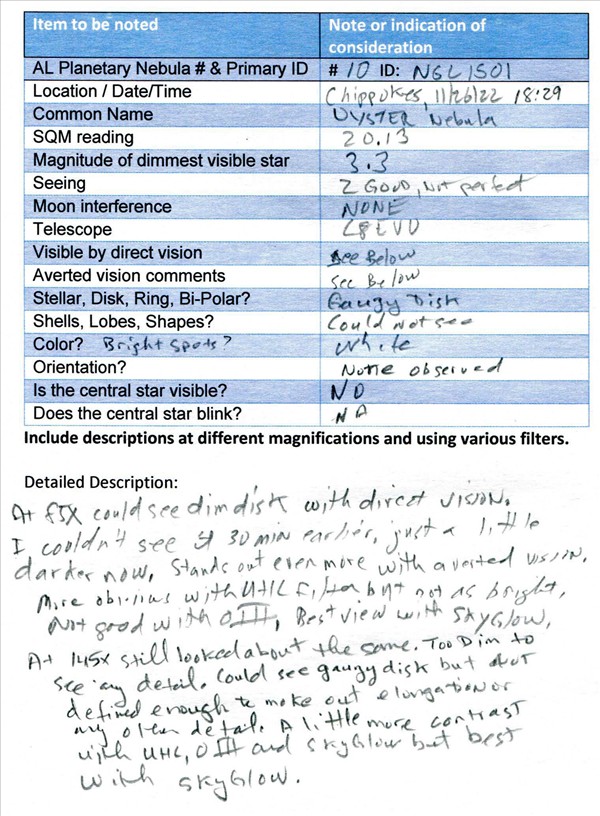 Item to be noted Note or indication of consideration
AL Planetary Nebula # & Primary ID # 10 ID: NGC1501
Location / Date/Time Chippokes, 11/26/22 18:29
Common Name OYSTER Nebula
SQM reading 20.13
Magnitude of dimmest visible star 3.3
Seeing 2 GOOD, Not perfect
Moon interference NONE
Telescope C8 EVO
Visible by direct vision See Below
Averted vision comments see Below
Stellar, Disk, Ring, Bi-Polar? Gauzy Disk
Shells, Lobes, Shapes? Could Not see
Color? Bright Spots? White
Orientation? None observed
Is the central star visible? NO
Does the central star blink? NA
Include descriptions at different magnifications and using various filters.
Detailed Description:
At 85X could see dim disk with direct vision.
I couldn't see it 30 min earlier, just a little
darker now, Stands out even more with averted vision.
More obvious with UHC Filter but not as bright,
Not good with OIII, Best view with SkyGlow,
At 145X still looked about the same. Too Dim to
see any detail. Could see gauzy disk but Not
defined enough to make out elongation or
any other detail. A little more contrast
with UHC, OIII and SkyGlow but best
with SkyGlow.